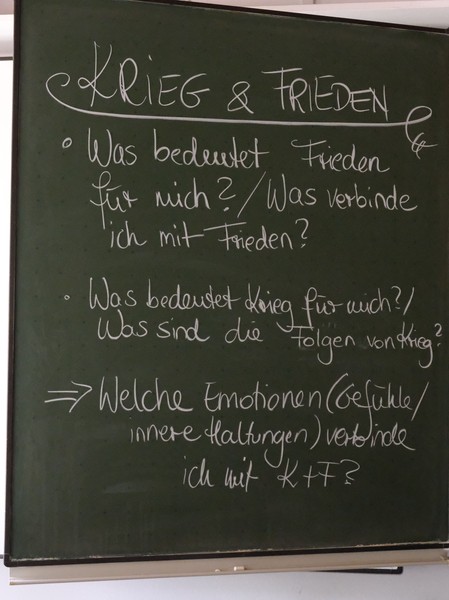 KRIEG & FRIEDEN
• Was bedeutet Frieden
für mich? / Was verbinde
ich mit Frieden?
• Was bedeutet Krieg für mich? /
Was sind die Folgen von Krieg?
⇒ Welche Emotionen (Gefühle /
innere Haltungen) verbinde
ich mit K+F?